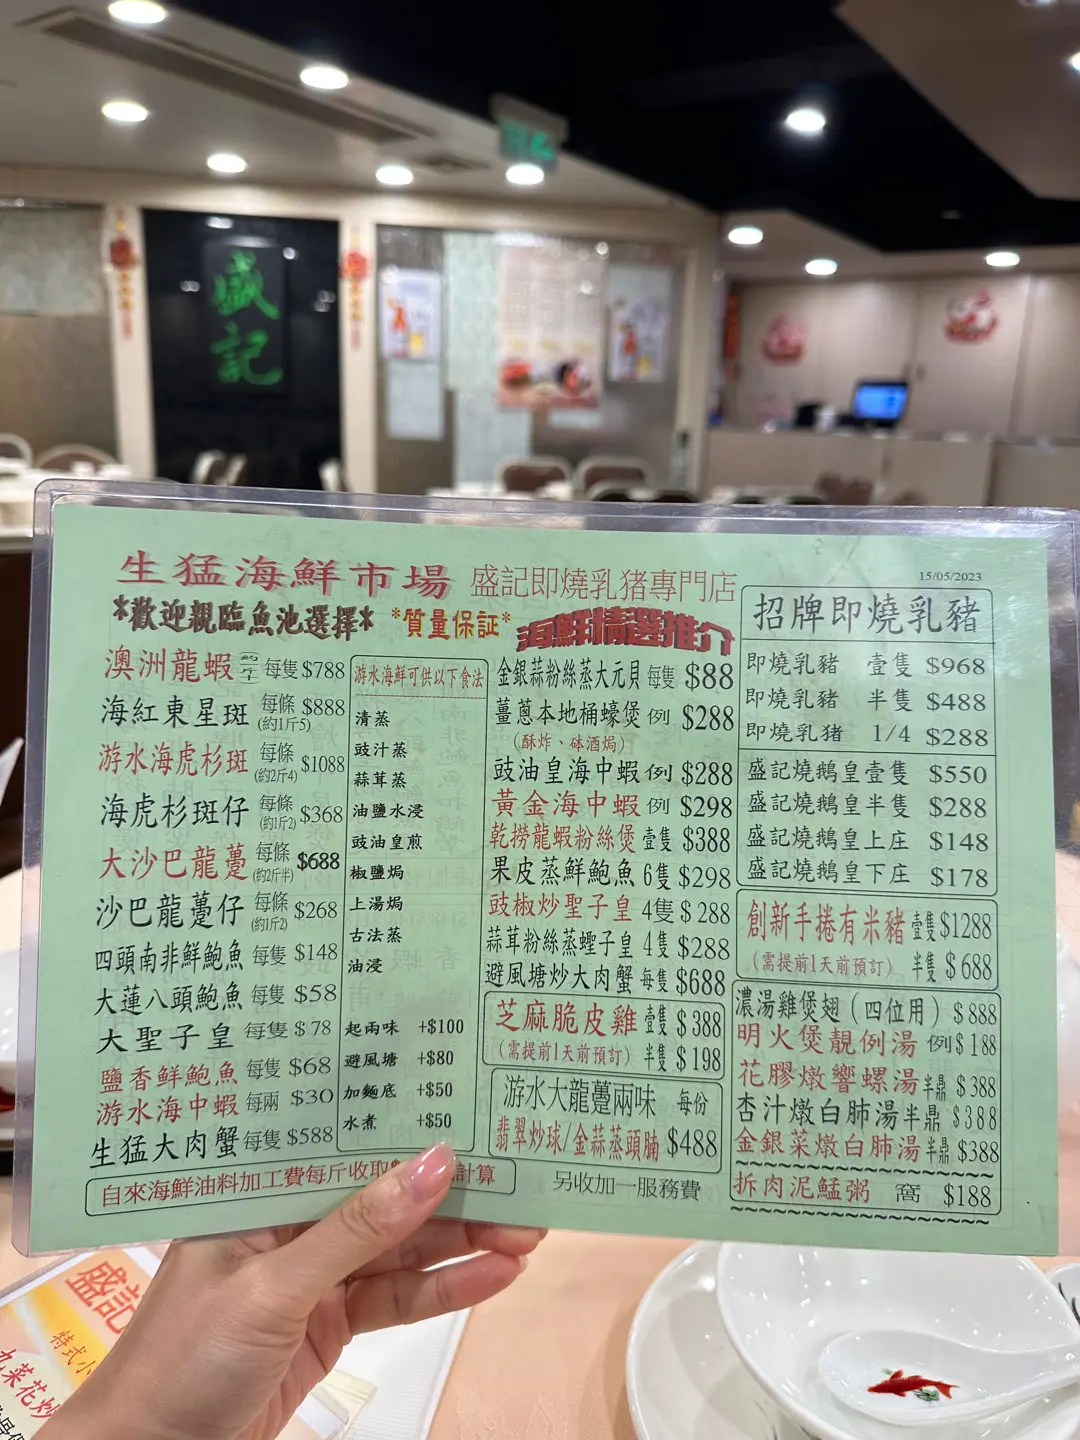 盛記
生猛海鮮市場 盛記即燒乳猪專門店
15/05/2023
*歡迎親臨魚池選擇* *質量保証*
澳洲龍蝦 每隻 $788
海紅東星斑 每條 (約1斤5) $888
游水海虎杉斑 每條 (約2斤4) $1088
海虎杉斑仔 每條 (約1斤2) $368
大沙巴龍躉 每條 (約2斤半) $688
沙巴龍躉仔 每條 (約1斤2) $268
四頭南非鮮鮑魚 每隻 $148
大蓮八頭鮑魚 每隻 $58
大聖子皇 每隻 $78
鹽香鮮鮑魚 每隻 $68
游水海中蝦 每兩 $30
生猛大肉蟹 每隻 $588
自來海鮮油料加工費每斤收取
計算
游水海鮮可供以下食法
清蒸
豉汁蒸
蒜茸蒸
油鹽水浸
豉油皇煎
椒鹽焗
上湯焗
古法蒸
油浸
起兩味 +$100
避風塘 +$80
加麵底 +$50
水煮 +$50
海鮮精選推介
金銀蒜粉絲蒸大元貝 每隻 $88
薑蔥本地桶蠔煲 例 $288
(酥炸、砵酒焗)
豉油皇海中蝦 例 $288
黃金海中蝦 例 $298
乾撈龍蝦粉絲煲 壹隻 $388
果皮蒸鮮鮑魚 6隻 $298
豉椒炒聖子皇 4隻 $288
蒜茸粉絲蒸蟶子皇 4隻 $288
避風塘炒大肉蟹 每隻 $688
芝麻脆皮雞 壹隻 $388
(需提前1天前預訂) 半隻 $198
游水大龍躉兩味 每份
翡翠炒球/金蒜蒸頭腩 $488
另收加一服務費
招牌即燒乳豬
即燒乳豬 壹隻 $968
即燒乳豬 半隻 $488
即燒乳豬 1/4 $288
盛記燒鵝皇壹隻 $550
盛記燒鵝皇半隻 $288
盛記燒鵝皇上庄 $148
盛記燒鵝皇下庄 $178
創新手捲有米豬 壹隻 $1288
(需提前1天前預訂) 半隻 $688
濃湯雞煲翅(四位用) $888
明火煲靚例湯 例 $188
花膠燉響螺湯 半鼎 $388
杏汁燉白肺湯 半鼎 $388
金銀菜燉白肺湯 半鼎 $388
拆肉泥鯭粥 窩 $188
盛記
特式小